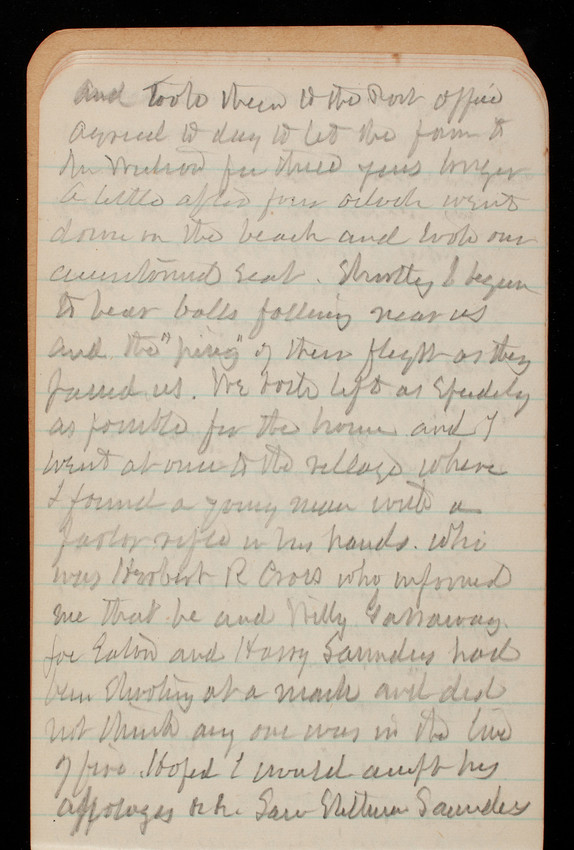 and took them to the Post office
agreed to day to let the farm to
for three years longer
A little after four oclock went
down on the beach and took our
accustomed seat. Shortly I began
to hear balls falling near us
and the "ping" of their flight as they
passed us. We both left as speedily
as possible for the house and I
went at once to the village where
I found a young man with a
parlor rifle in his hands. who
was Herbert R Cross who informed
me that he and Willy Garraway
Joe Eaton and Harry Saunders had
been shooting at a mark and did
not think any one was in the line
of fire. Hoped I would accept his
appologies &c &c. Saw Saunders